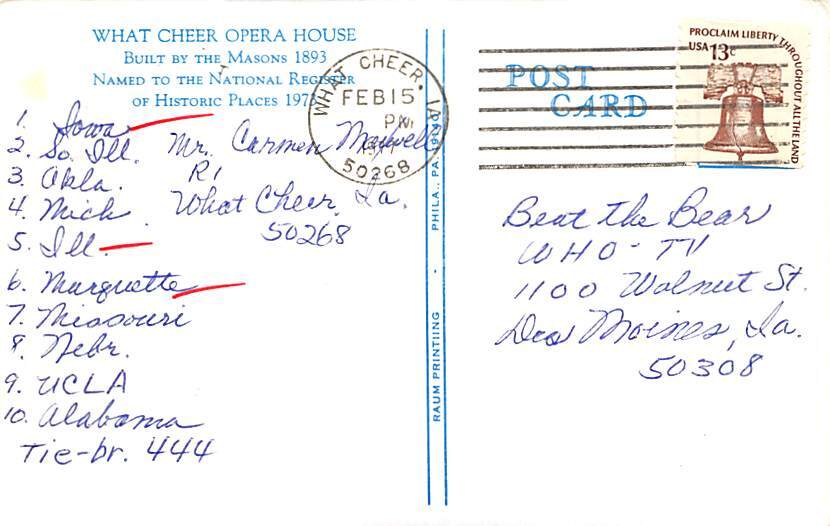 WHAT CHEER OPERA HOUSE
BUILT BY THE MASONS 1893
NAMED TO THE NATIONAL REGISTER
OF HISTORIC PLACES
1. Iowa
2. So. Ill.
3. Okla.
4. Mich.
5. Ill.
6. Marquette
7. Missouri
8. Nebr.
9. UCLA
10. Alabama
Tie-br. 444
Mr. Carmen Maxwell
R1
What Cheer, Ia.
50268
WHAT CHEER, IA
FEB 15
PM
50268
RAUM PRINTIING - PHILA., PA.
POST
CARD
PROCLAIM LIBERTY THROUGHOUT ALL THE LAND
USA 13c
Beat the Bear
WHO-TV
1100 Walnut St.
Des Moines, Ia.
50308